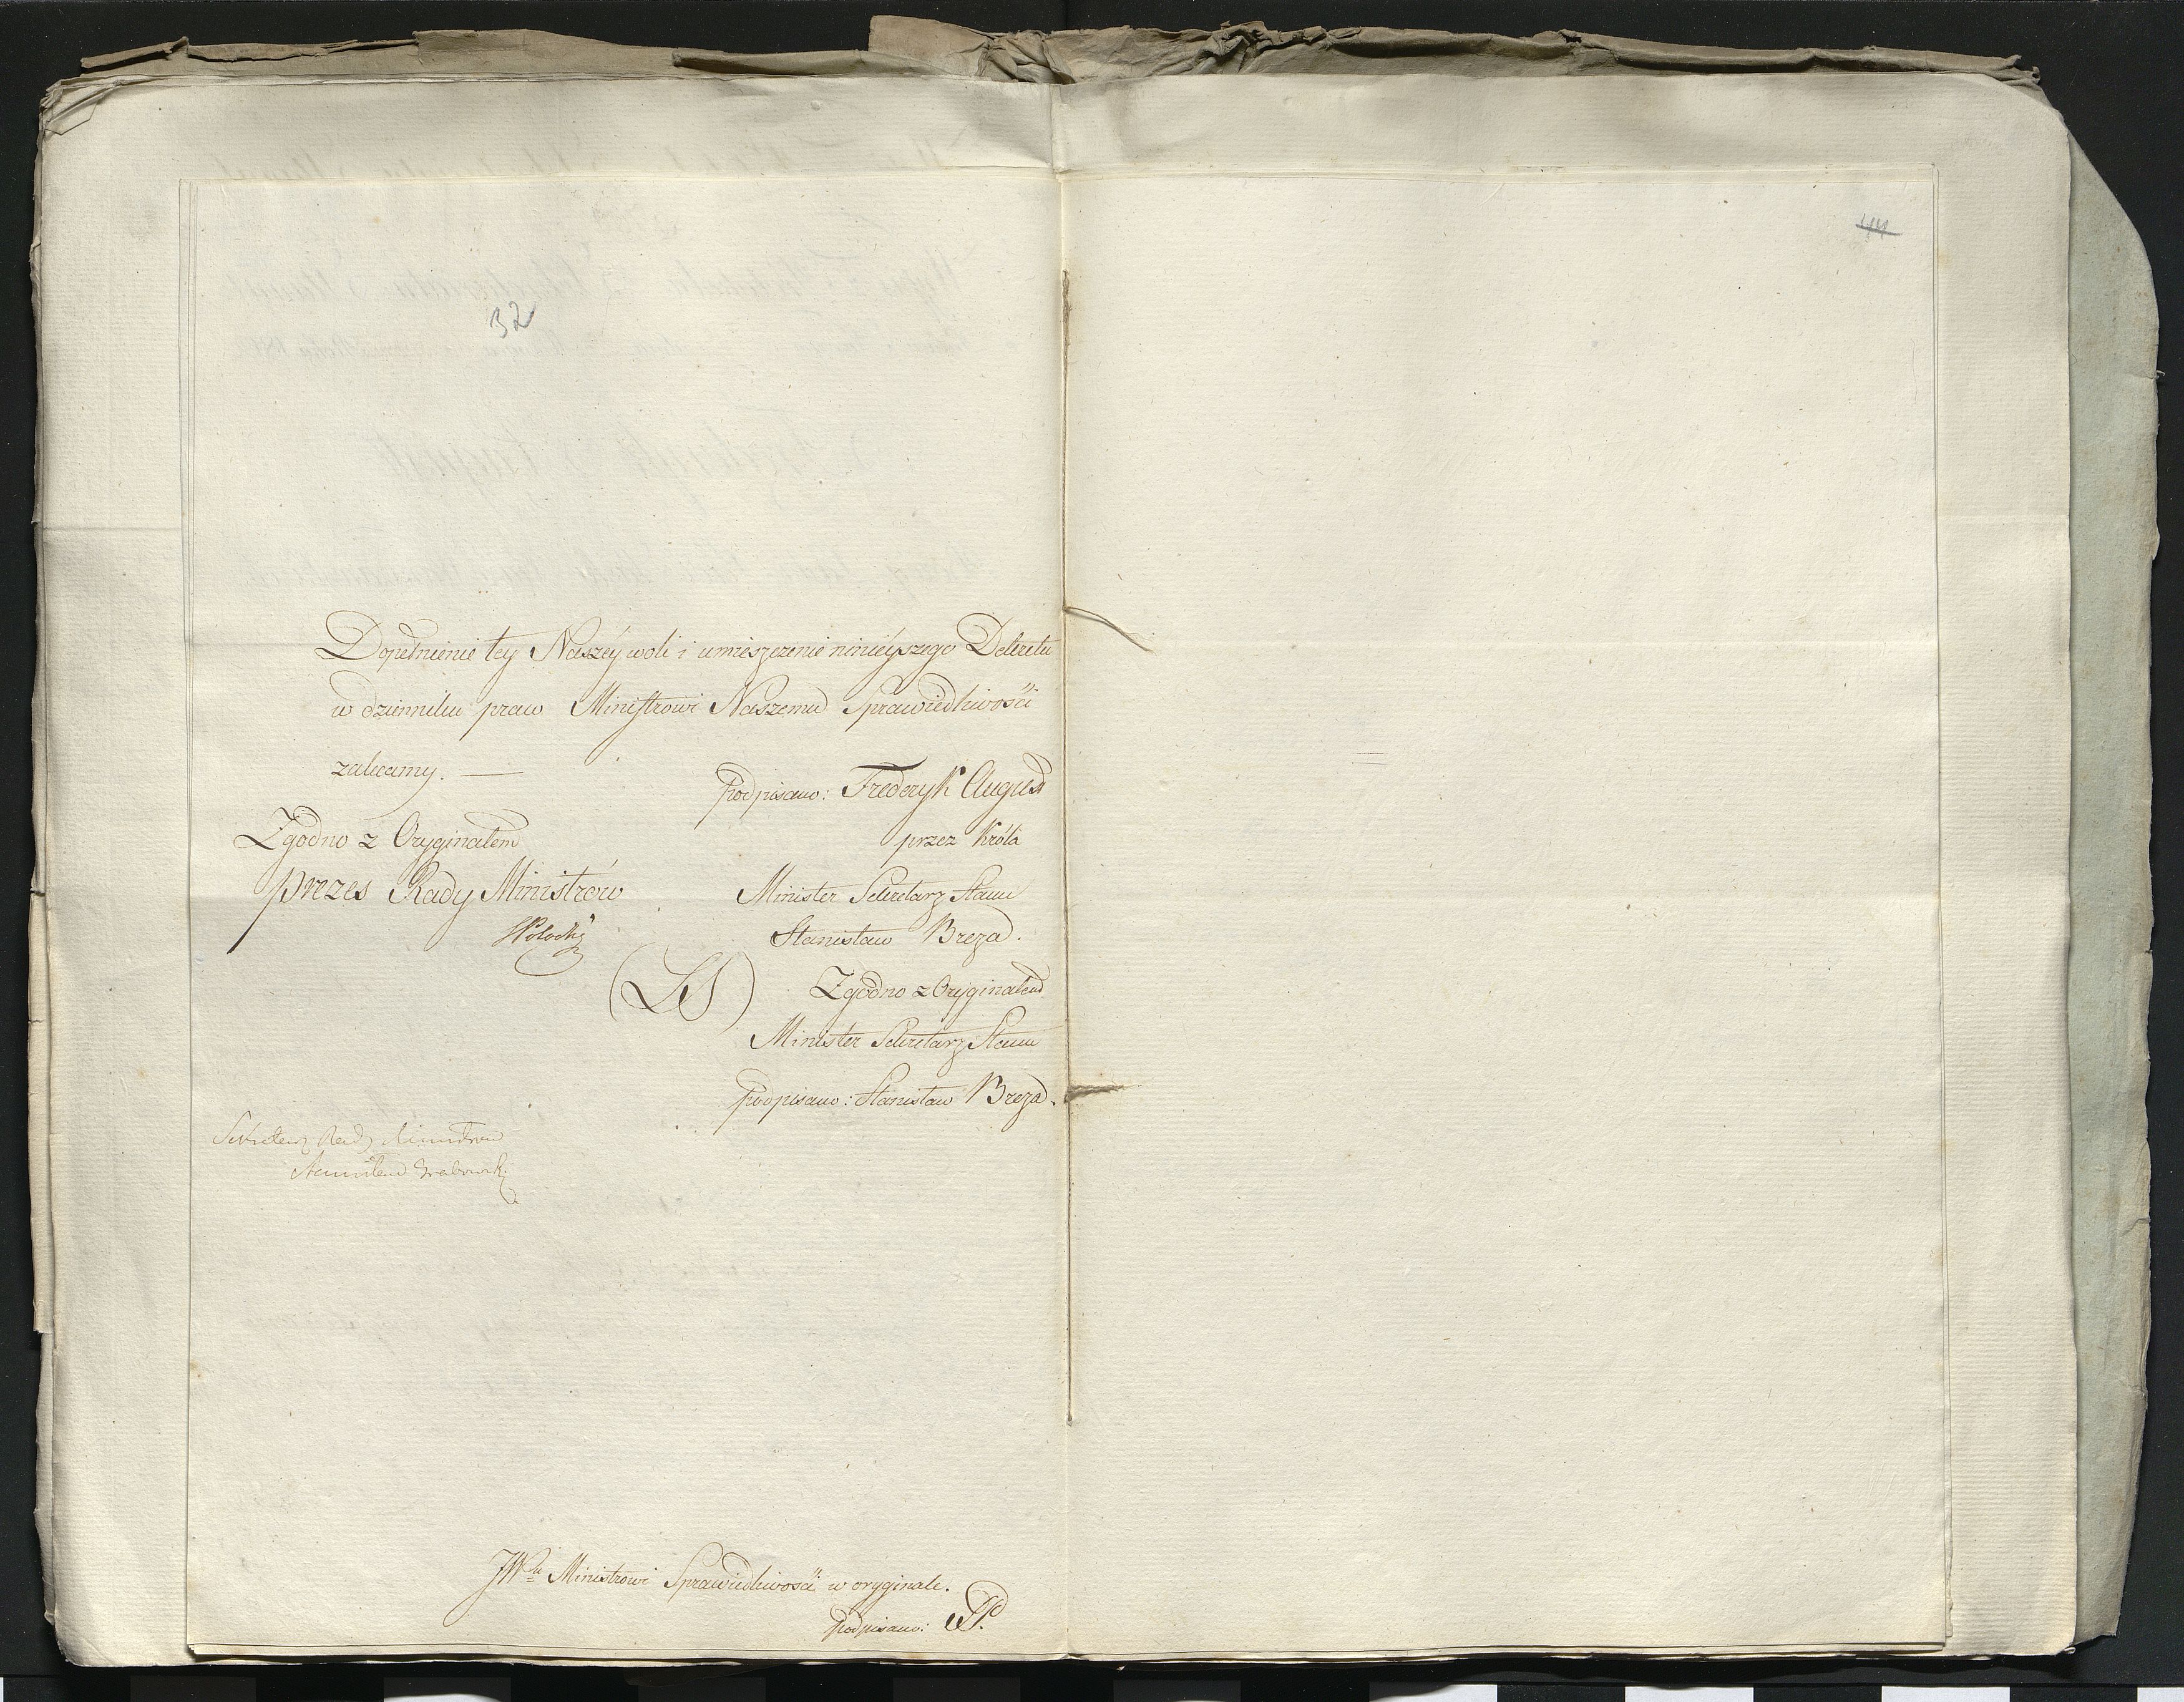 44
32
Dopełnienie tey Naszéy woli i umieszczenie ninieyszego Dekretu
w dzienniku praw Ministrowi Naszemu Sprawiedliwości
zalecamy. —
podpisano: Frederyk August
przez Króla
Zgodno z Oryginałem
Prezes Rady Ministrów
SPotocki
Minister Sekretarz Stanu
Stanisław Breza.
(LS)
Zgodno z Oryginałem
Minister Sekretarz Stanu
podpisano: Stanisław Breza.
Sekretarz Rady Ministrow
Stanisław Grabowski
JWu Ministrowi Sprawiedliwości w oryginale.
podpisano: SP.